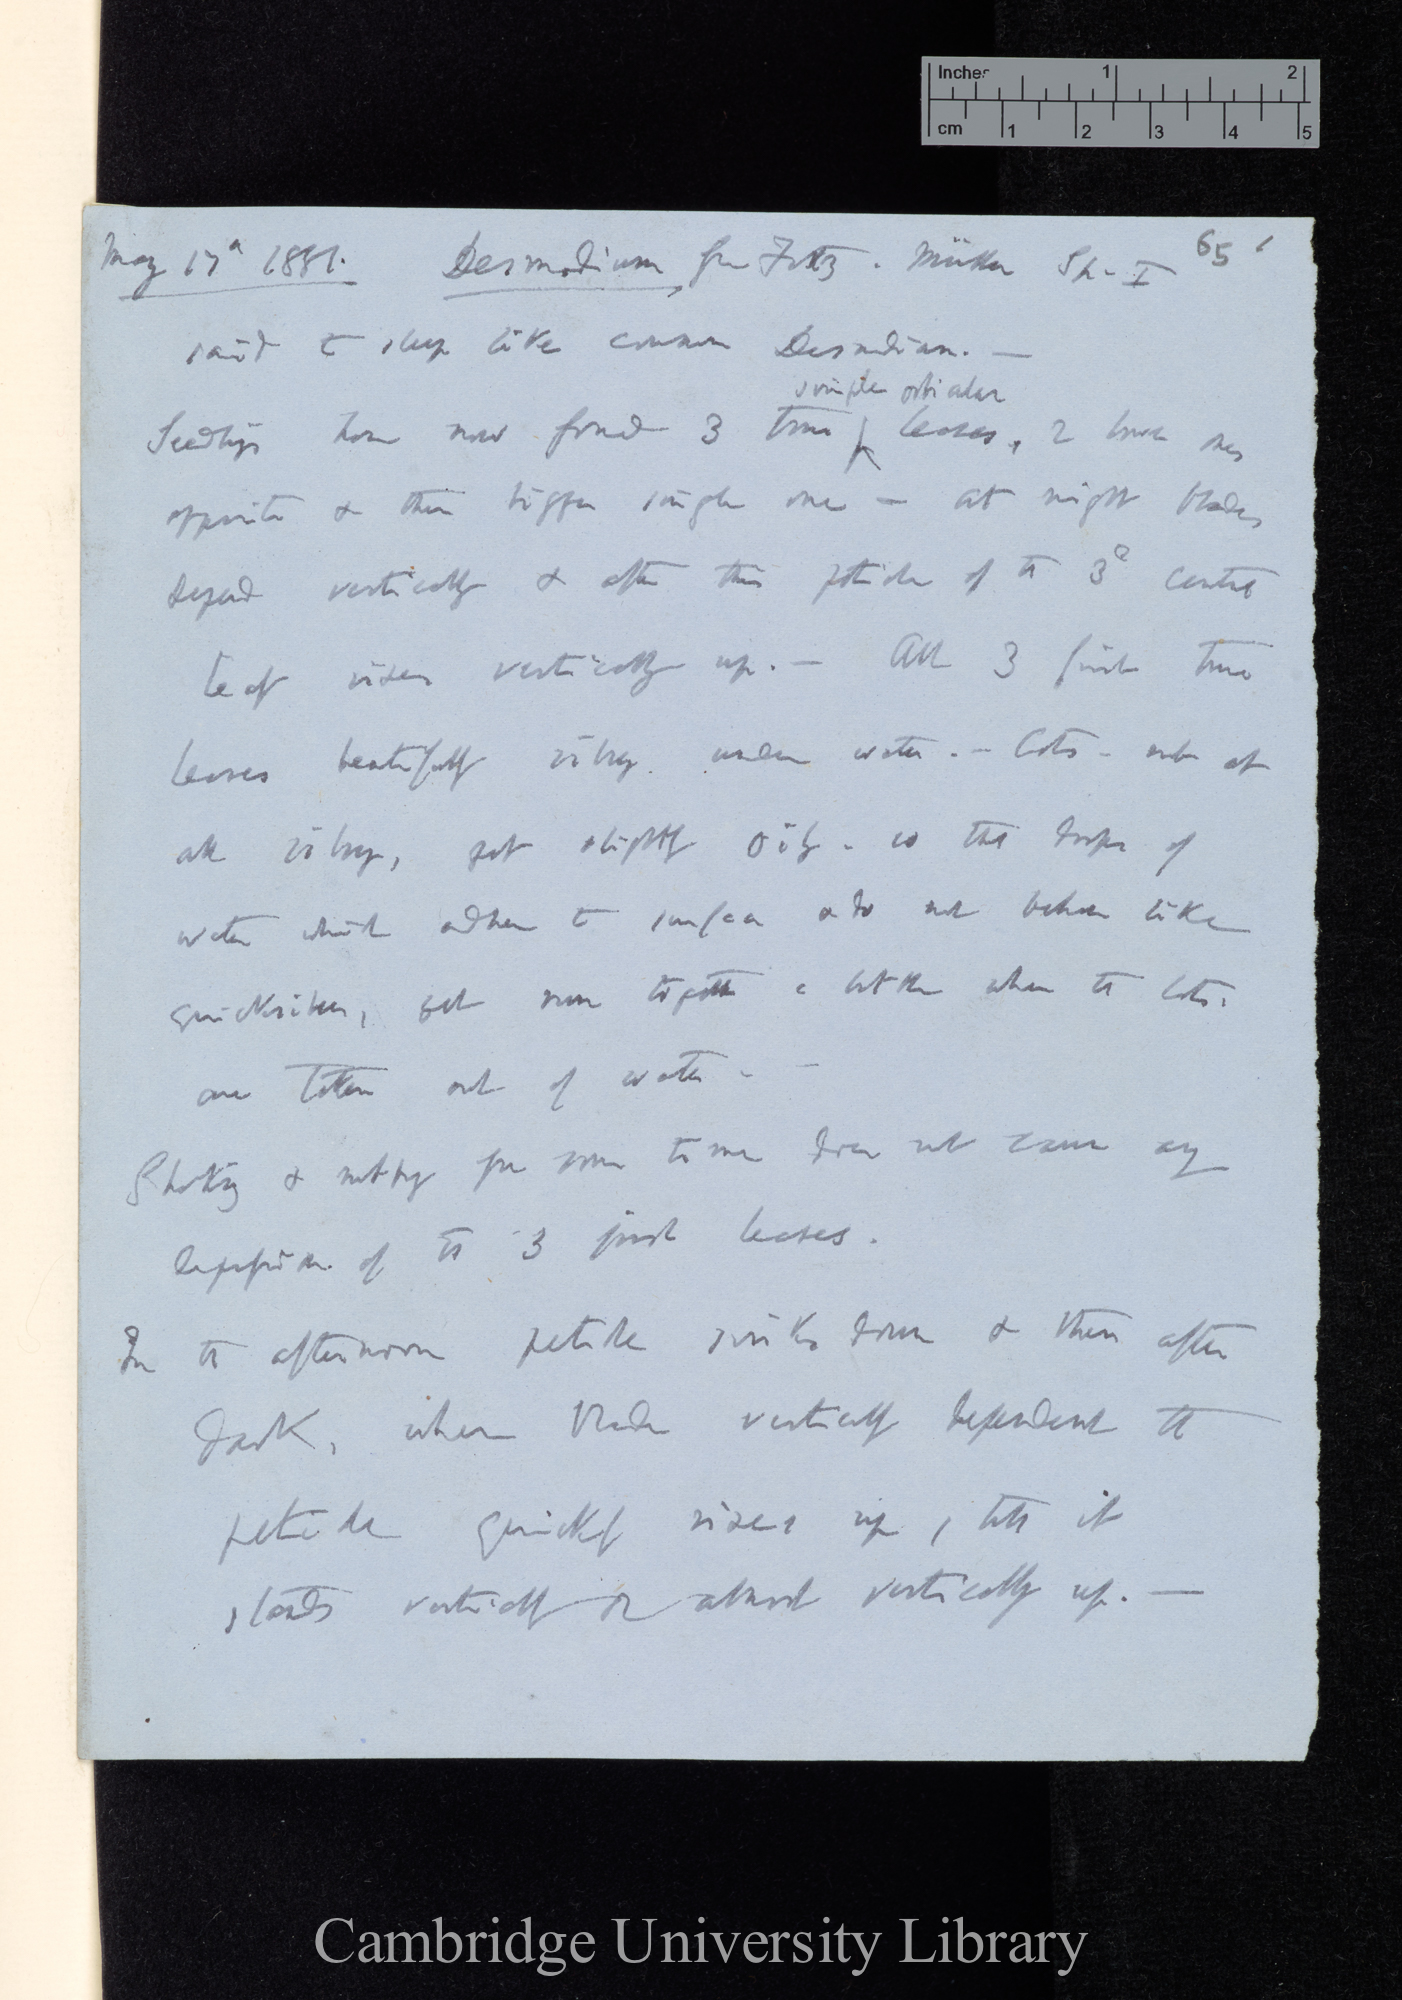 Inches 1 2
cm 1 2 3 4 5
65
May 17th 1881. Desmodium, from Fritz. Müller Sp. I
said to sleep like common Desmodium. —
simple orbicular
Seedlings have now formed 3 true leaves, 2 lower ones
opposite & then bigger single one — at night blades
depend vertically & after this petiole of the 3d central
leaf rises vertically up. — All 3 first true
leaves beautifully silvery under water. — Cots. not at
all silvery, but slightly oily. so that drops of
water which adhere to surface & do not behave like
quicksilver, but run together a little when the Cots.
are taken out of water. —
Shaking & rubbing for some time does not cause any
depression of the 3 first leaves.
In the afternoon petiole sinks down & then after
dark, when blade vertically dependent the
petiole quickly rises up, till it
stands vertically or almost vertically up. —
Cambridge University Library